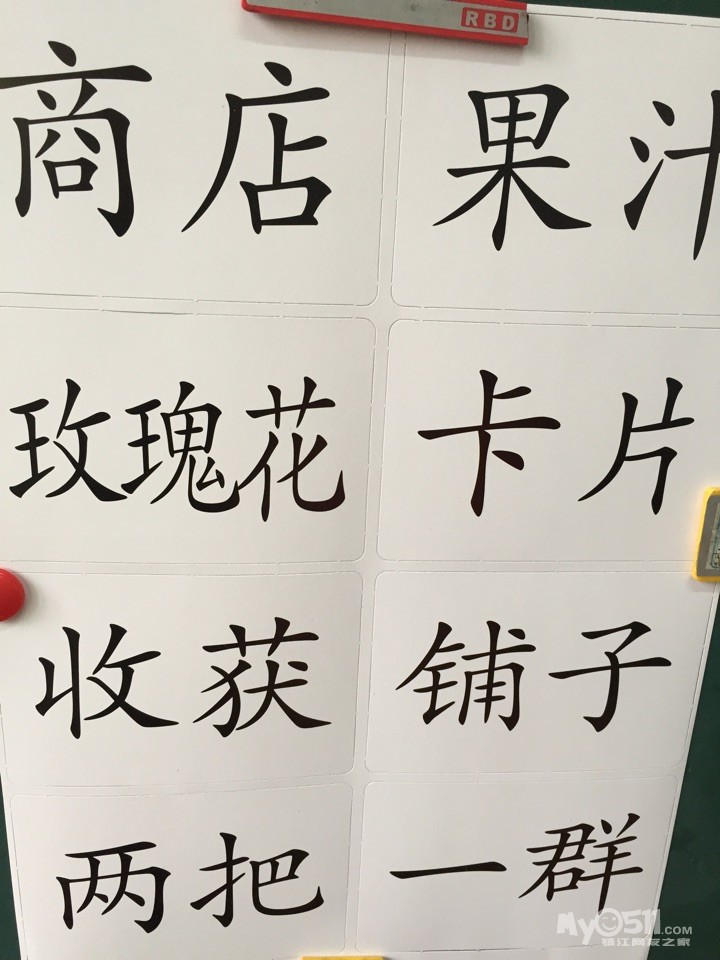 RBD
商店 果汁
玫瑰花 卡片
收获 铺子
两把 一群
My0511.COM
镇江网友之家